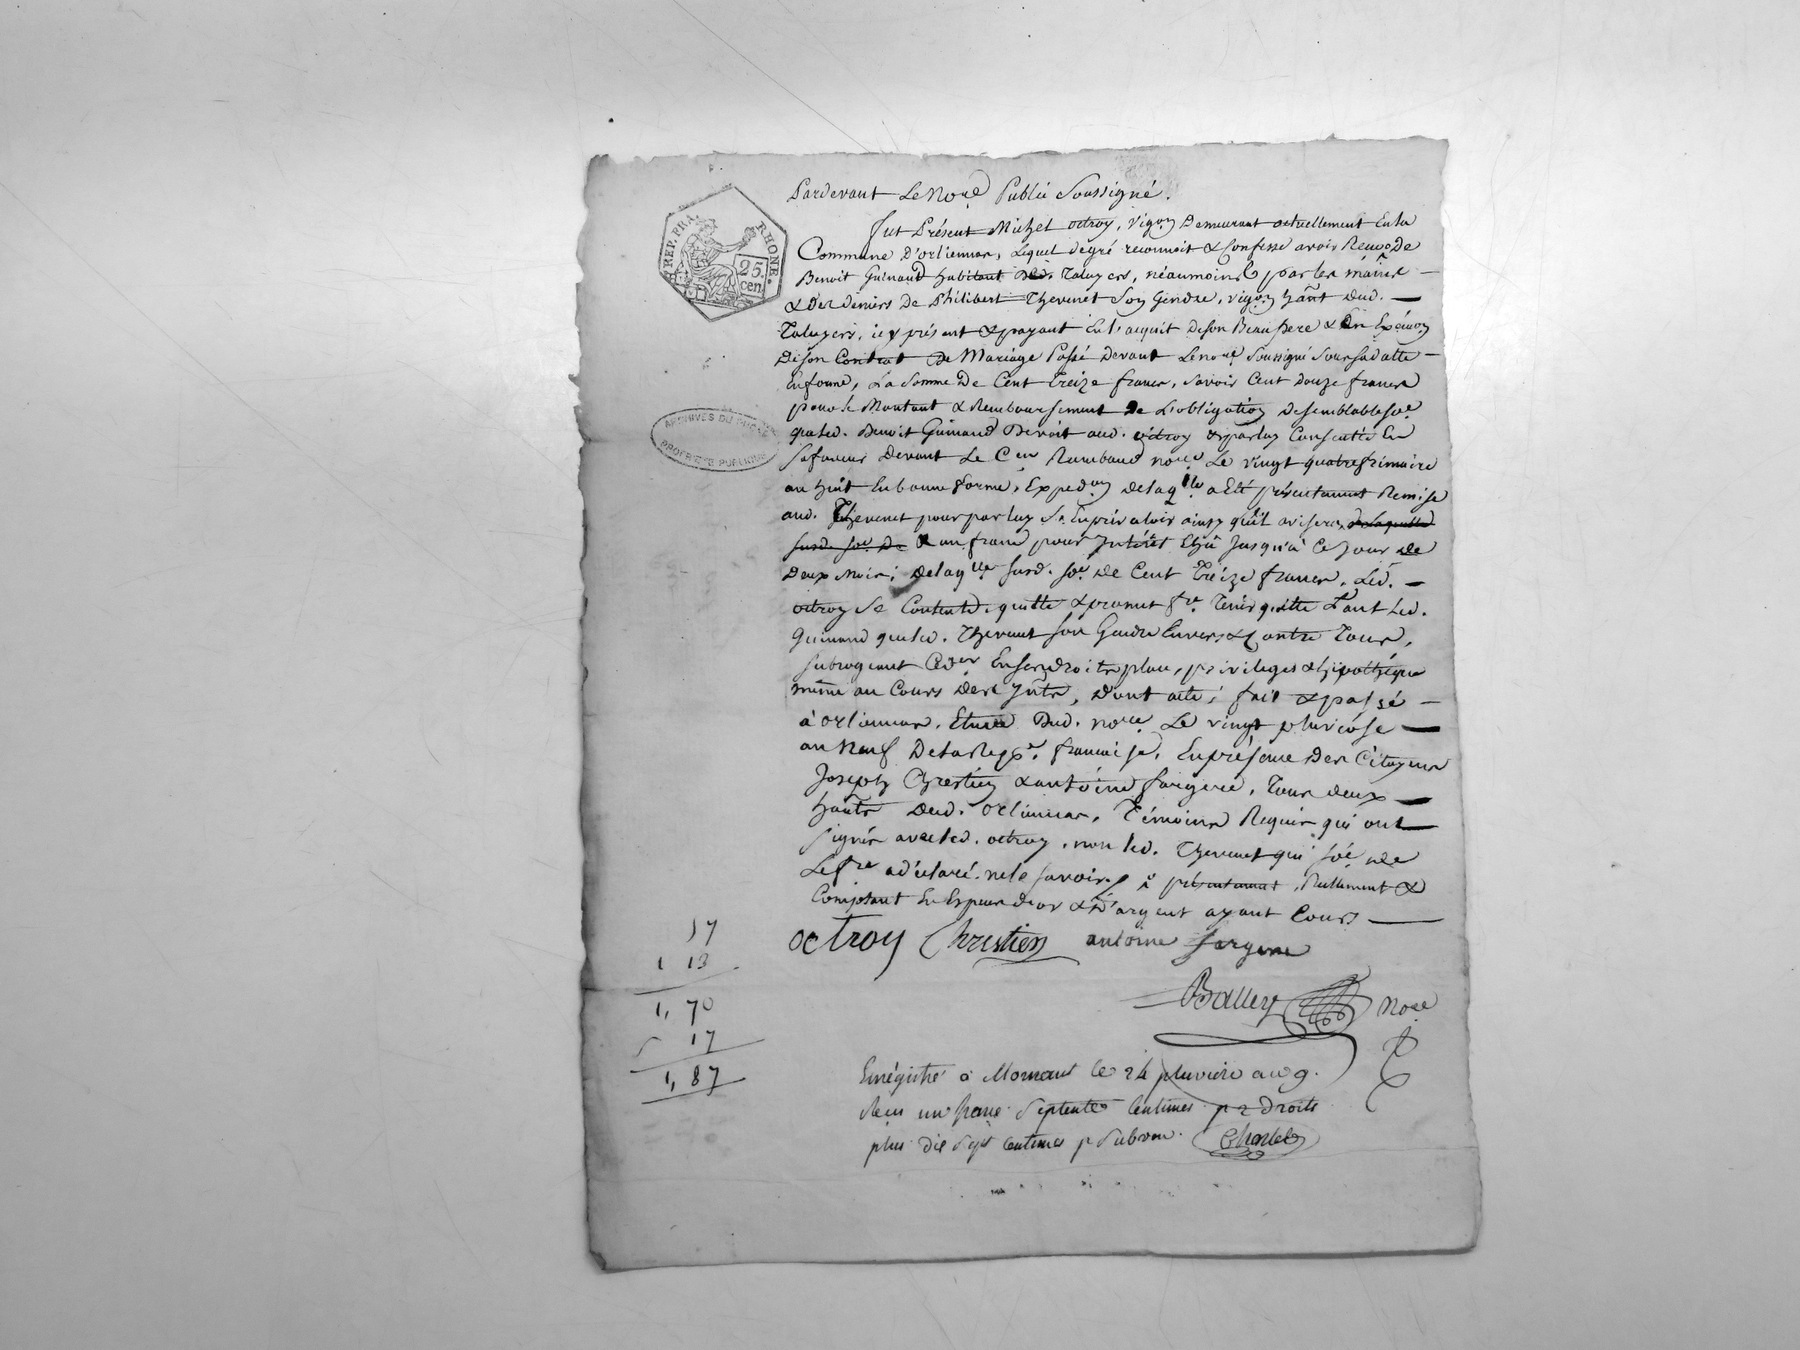 Pardevant Le Nore Public Soussigné.
REP. FRA. RHONE. 25. cen.
fut Présent Michel octroy, vigon Demeurant actuellement En la
Commune D'orliennas, Lequel de gré reconnoit & Confesse avoir Reçu de
Benoit Guinand habitant de Taluyers, néaumoins par les mains
& des deniers de Philibert Thevenet Son Gendre, vigon hant dud.
Taluyers, icy présent & payant En l'acquit de son Beau pere & En Exéuon
de son Contrat de Mariage Passé devant Le nore Soussigné Sous sa datte
En forme, La Somme De Cent Treize francs, Savoir Cent douze francs
pour le Montant & Remboursement de L'obligation de semblable soe
que led. Benoit Guinand Devoit aud. octroy & par luy Consentie En
sa faveur Devant Le Cen Rambaud nore Le vingt quatre frimaire
an huit En bonne forme, Expedon de laqlle a Eté présentement Remise
aud. Thevenet pour par luy s'En prévaloir ainsy qu'il avisera, de laquelle
susd. soe de & un franc pour Intérêt Echû Jusqu'à Ce Jour de
Deux mois; de laqlle susd. soe de Cent Treize francs, Led.
octroy Se Contente, quitte & promet fre Tenir quitte Tant Led.
Guinand que led. Thevenet son Gendre Envers & Contre Tous,
subrogeant Ced er En ses droits place, privileges & hipothéque
même au Cours des Ints, Dont acte; fait & passé
à orliennas, Etude Dud. nore Le vingt pluviôse
an Neuf De la Repe. francaise, En présence Des Citoyens
Joseph Chrestien & antoine fargere, Tous deux
hants Dud. orliennas, Témoins Requis qui ont
signés avec led. octroy, non led. Thevenet qui soé de
Le fre a déclaré ne le savoir, présentement, Réellement &
Comptant En Especes d'or & d'argent ayant Cours
ARCHIVES DU RHONE
PROPRIETE PUBLIQUE
octroy Chrestien antoine fargere
Ballery Nore
17
1 13
1, 70
17
1, 87
Enrégistré à Mornant le 24 pluviôse an 9.
Reçu un franc Septente Centimes pr 2 Droits
plus dix Sept Centimes pr Subvon.